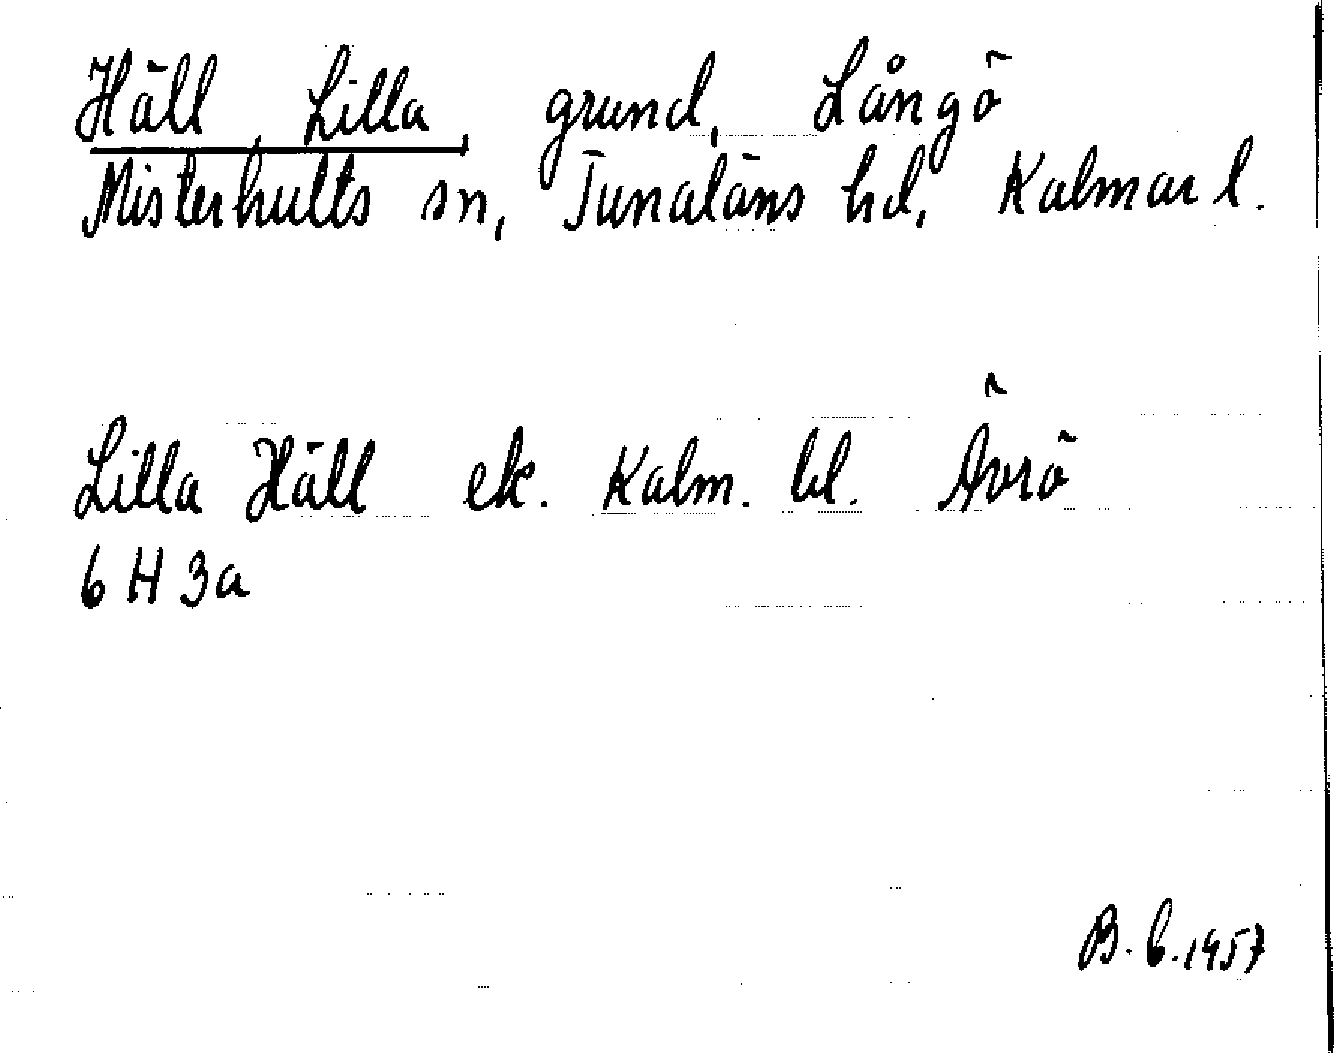 Häll, Lilla, grund, Långö
Misterhults sn, Tunaläns hd, Kalmar l.
Lilla Häll ek. Kalm. bl. Ävrö
6 H 3a
B. b. 1957